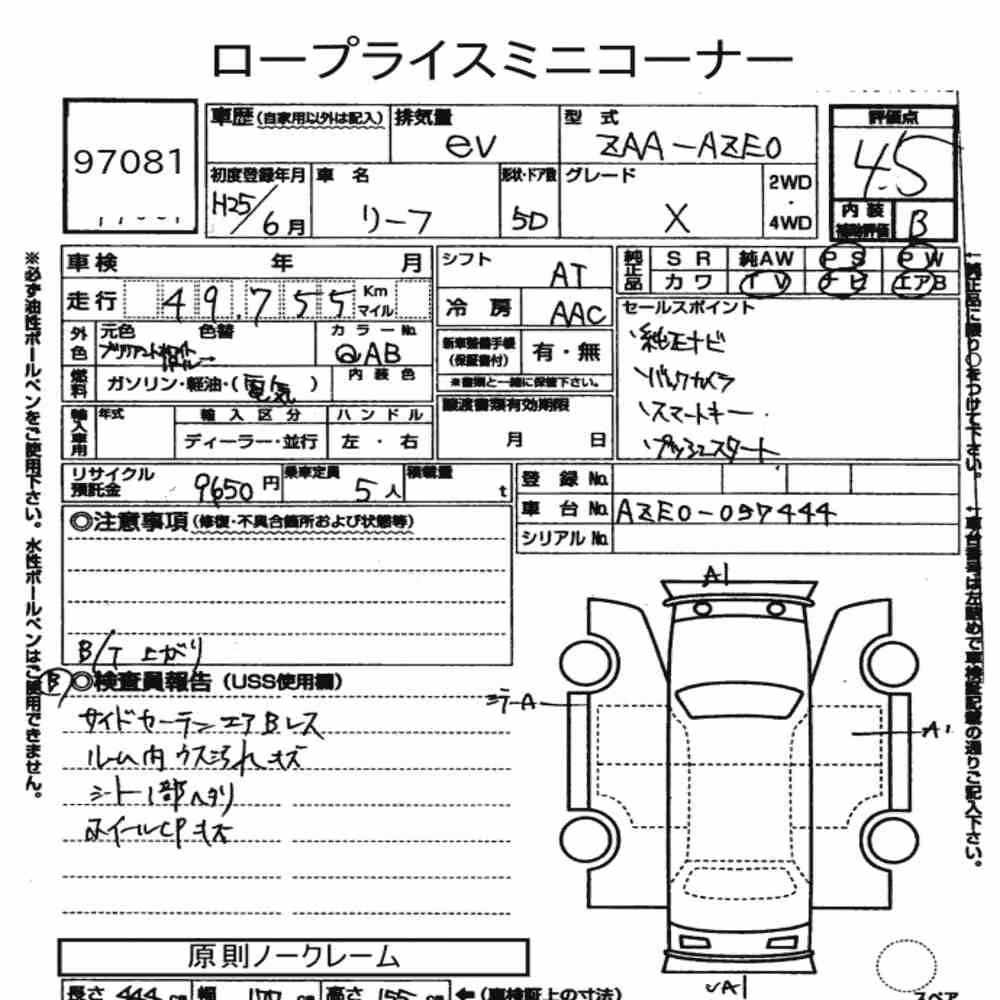 ロープライスミニコーナー
97081
車歴(自家用以外は記入) 排気量 型 式 評価点
ev ZAA-AZE0 4.5
初度登録年月 車 名 形状・ドア数 グレード 2WD ・ 4WD
H25/6月 リーフ 5D X
内 装 補助評価 B
車検 年 月
走行 49.755 Km マイル
外色 元色 色替 カラーNo.
ブリリアントホワイトパール QAB
燃料 ガソリン・軽油・(電気) 内装色
輸入車用 年式 輸入区分 ハンドル
ディーラー・並行 左・右
シフト AT
冷房 AAC
新車整備手帳 (保証書付) 有・無
※書類と一緒に保管下さい。
譲渡書類有効期限
月 日
純正品 SR 純AW PS PW
カワ TV ナビ エアB
セールスポイント
純正ナビ
バックカメラ
スマートキー.
プッシュスタート
リサイクル預託金 9650円 乗車定員 5人 積載量 t
登録No.
車台No. AZE0-057444
シリアルNo.
◎注意事項(修復・不具合箇所および状態等)
B/T 上がり
B ◎検査員報告(USS使用欄)
サイドカーテンエアBレス
ルーム内ウスヨゴレキズ
シート1部ヘタリ
ホイールCPキズ
A1
ミラーA
A1
A1
原則ノークレーム
長さ 444 cm 幅 170 cm 高さ 155 cm ←(車検証上の寸法)
スペア
※必ず油性ボールペンをご使用下さい。水性ボールペンはご使用できません。
↑純正品に限り○をつけて下さい。
↑車台番号は左詰めで車検証記載の通りご記入下さい。